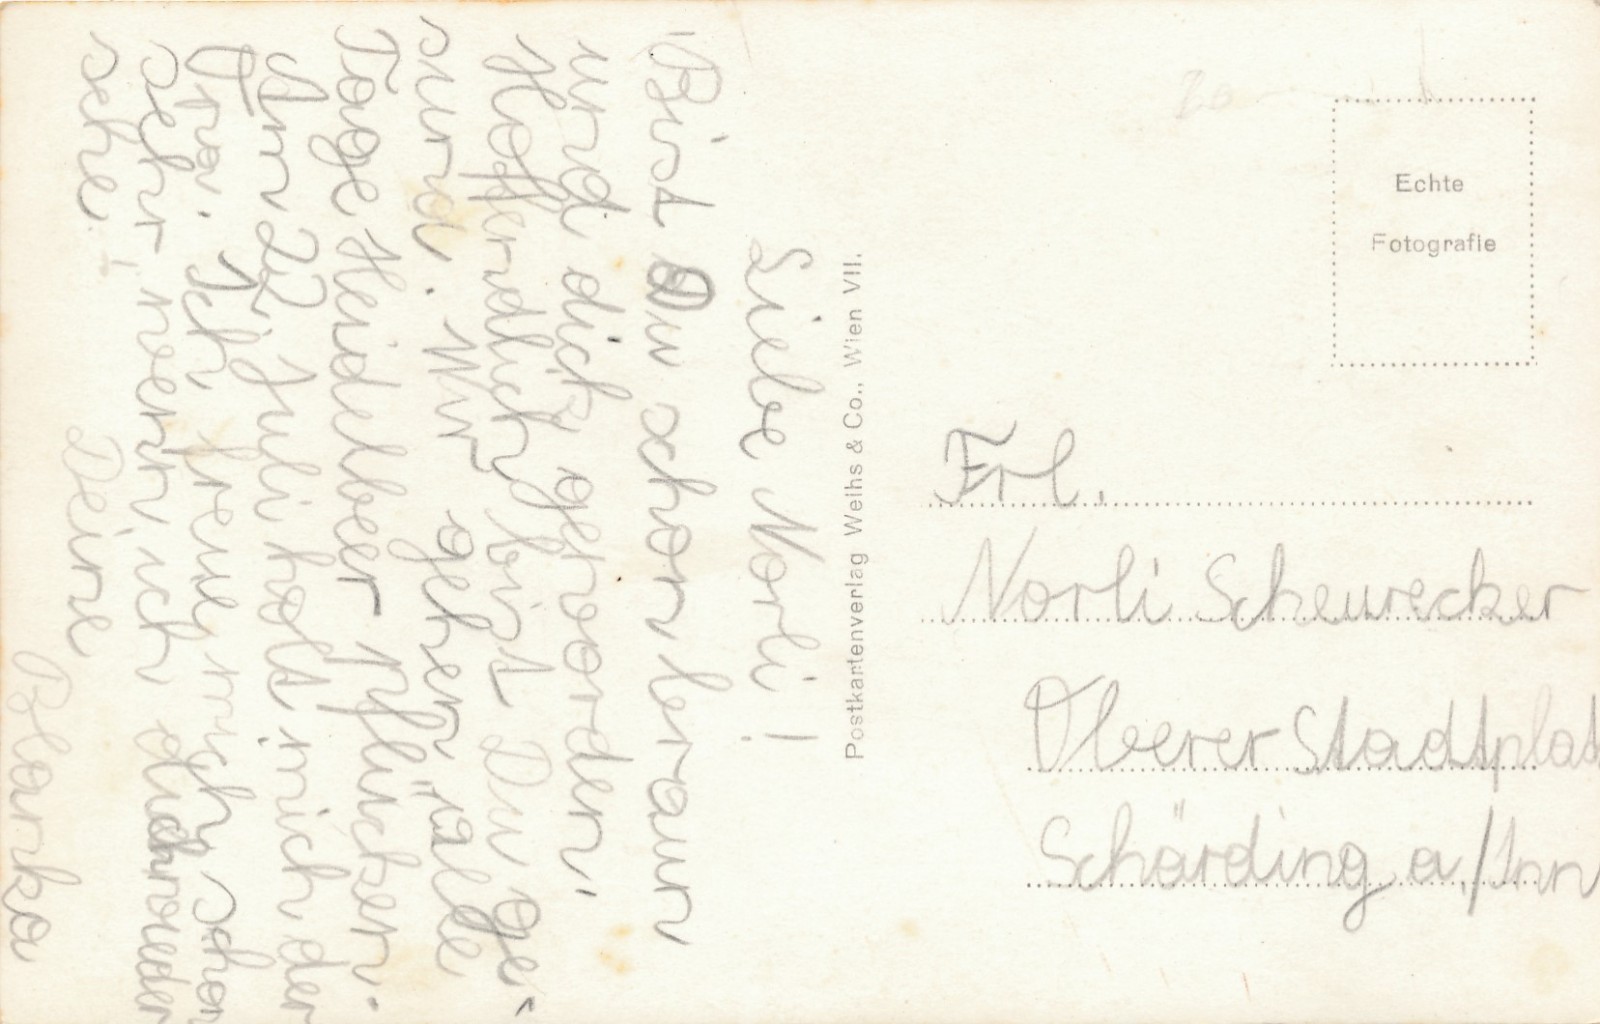 Liebe Norli!
Bist Du schon braun
und dich geworden.
Hoffendlich bist Du ge-
sund. Wir gehen alle
Tage Heidelbeer pflücken.
Am 22 Juli holt mich der
Ich freue mich schon
sehr, wenn ich dich wieder
sehe!
Deine
Blanka
Postkartenverlag Weihs & Co., Wien VII.
Echte
Fotografie
Frl.
Norli Scheurecker
Oberer Stadtplat
Schärding a/Inn